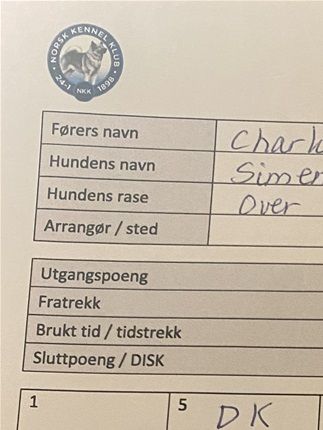 NORSK KENNEL KLUB
24-1 NKK 1898
Førers navn
Hundens navn
Hundens rase Over
Arrangør / sted
Utgangspoeng
Fratrekk
Brukt tid / tidstrekk
Sluttpoeng / DISK
1 5 DK